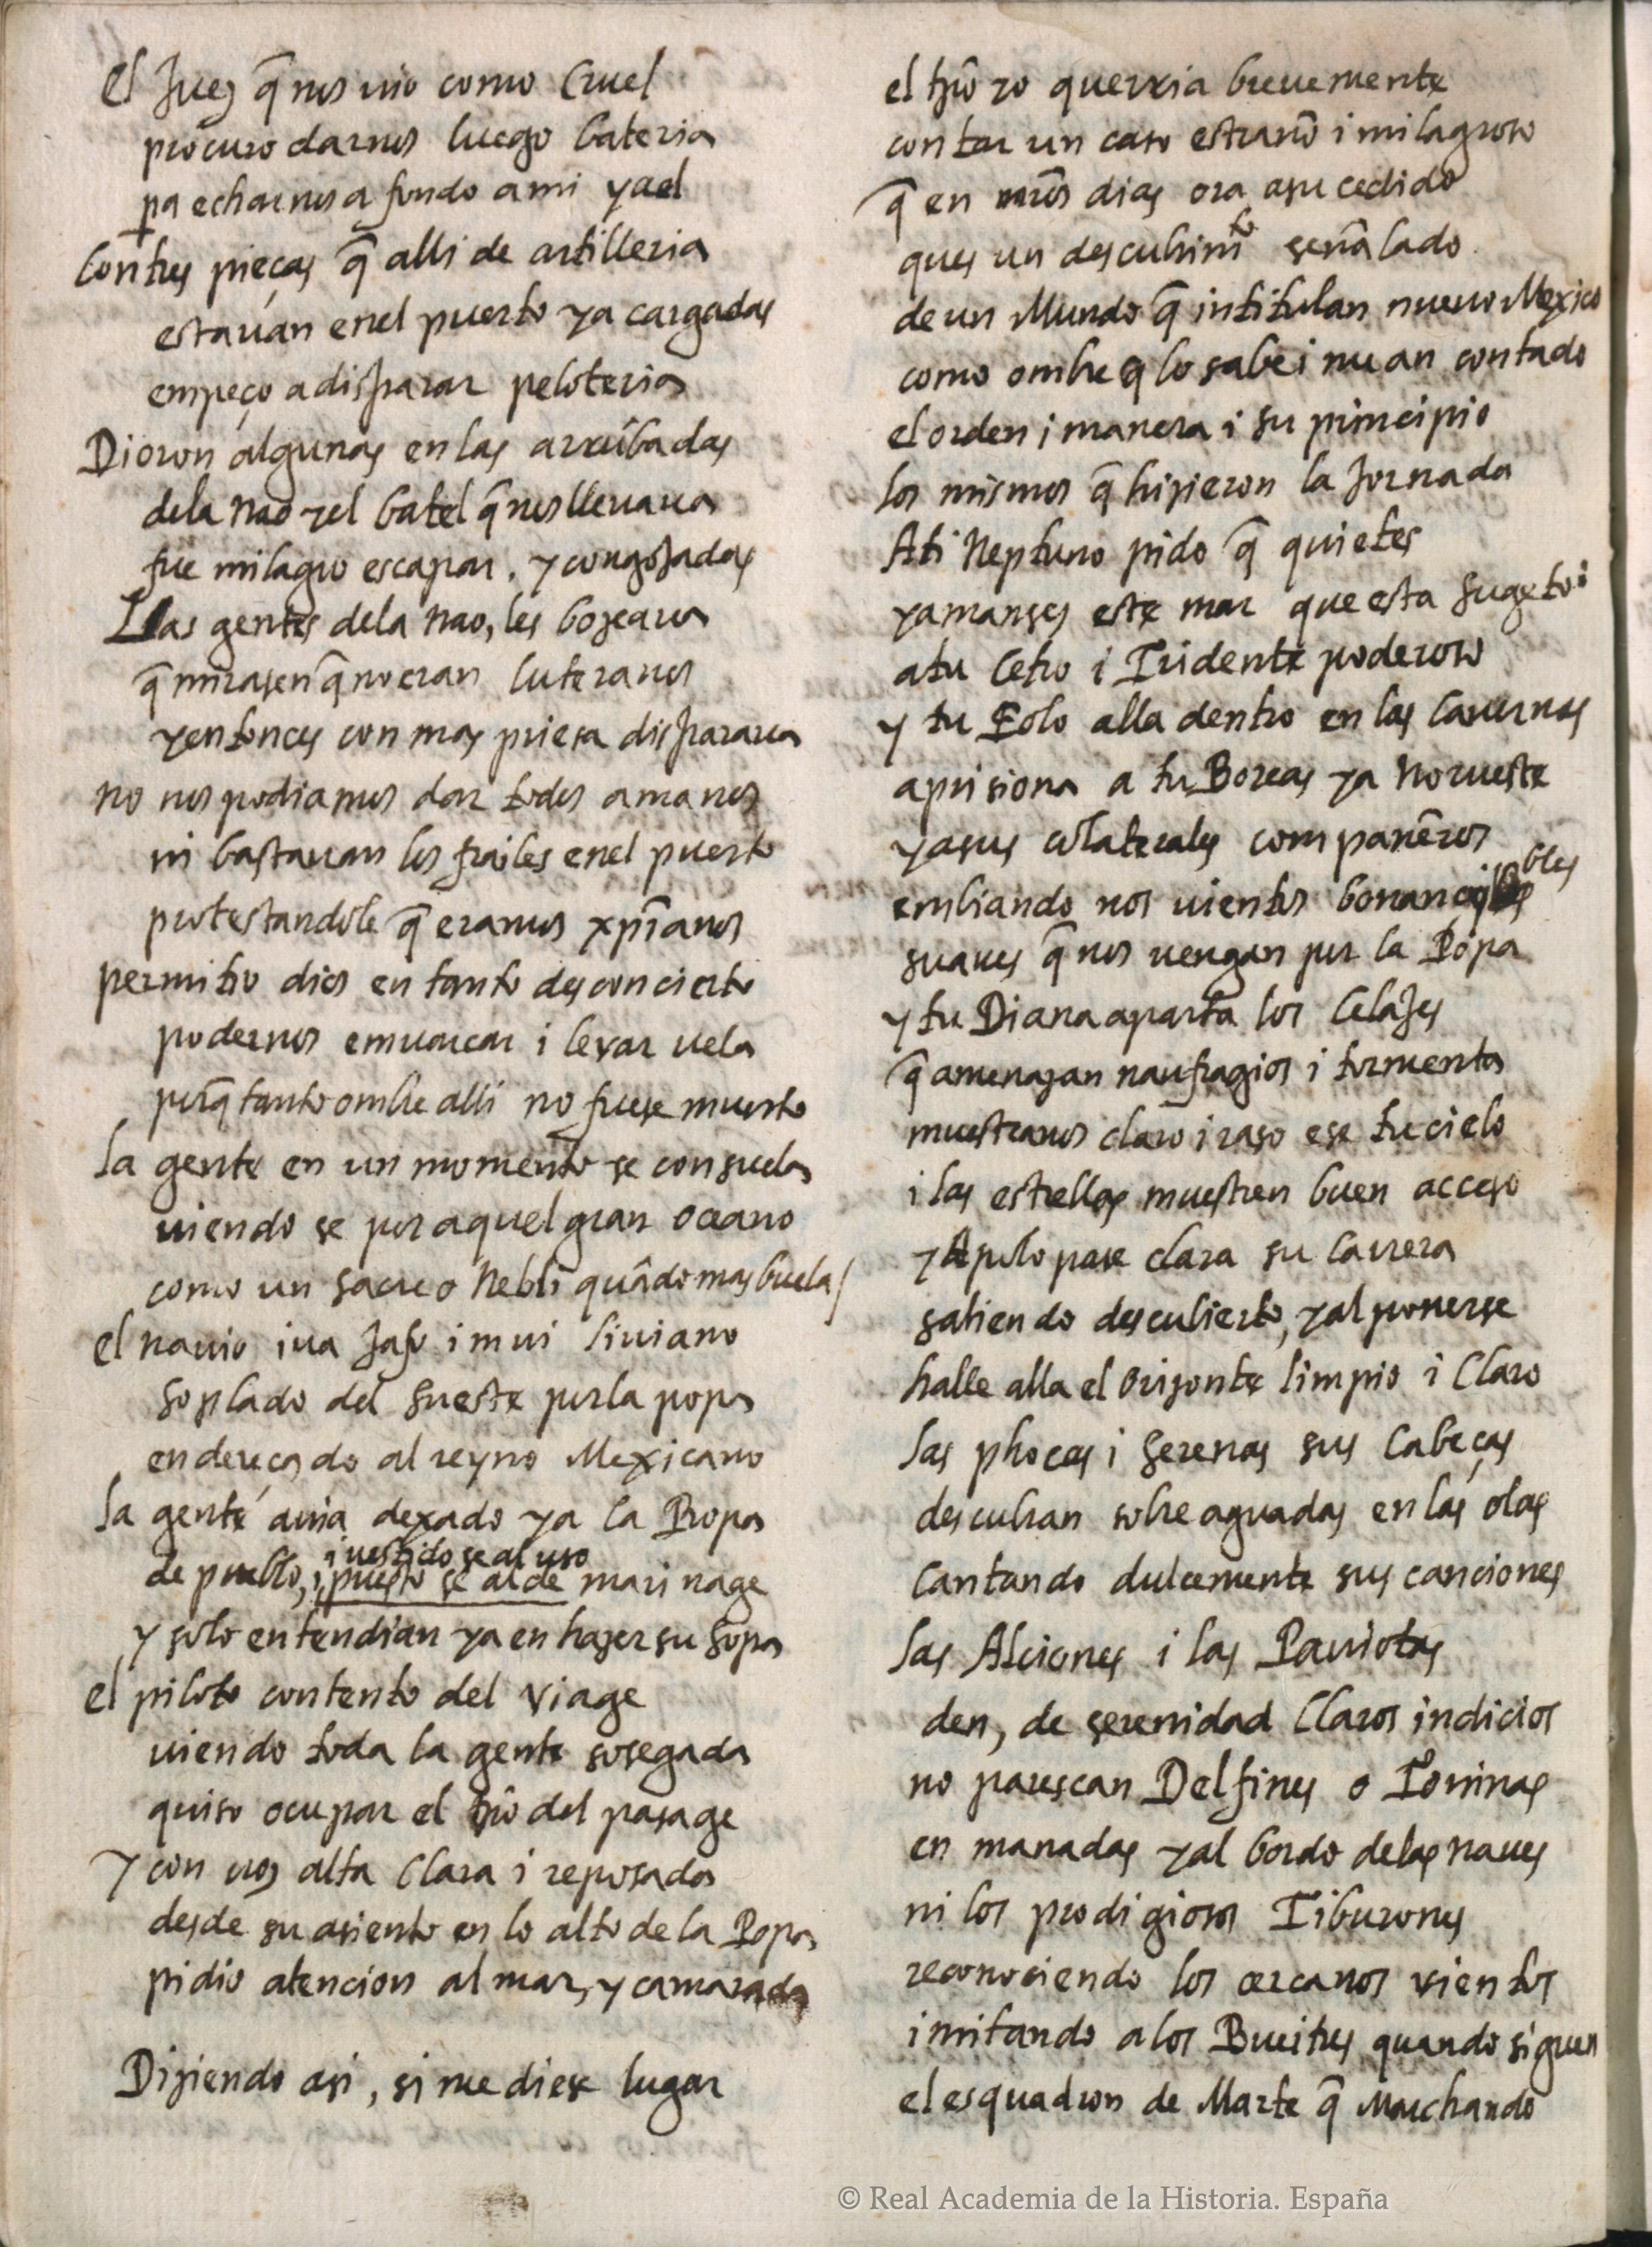 El Juez q̃ nos vio como Cruel
procuro darnos luego bateria
pa echarnos a fondo a mi y a el
Con tres pieças q̃ alli de artilleria
estavan en el puerto ya cargadas
empeço a disparar peloteria
Dioron algunas en las arrũbadas
de la nao y el batel q̃ nos llevava
fue milagro escapar, y congojadas
Las gentes de la nao, les bozeava
q̃ mirasen q̃ no eran luteranos
y entonces con mas priesa disparava
no nos podiamos dar todos a manos
ni bastavan los frailes en el puerto
protestandole q̃ eramos xp̃ianos
permitio dios en tanto desconcierto
podernos emvarcar i levar vela
porq̃ tanto ombre alli no fuese muerto
la gente en un momento se consuela
viendo se por aquel gran oceano
como un sacre o Nebli quãdo mas buela
el navio iva zafo i mui liviano
soplado del sueste por la popa
endereçado al reyno Mexicano
la gente avia dexado ya la Ropa
i vestido se al uso
de pueblo, i puesto se al de marinage
y solo entendian ya en hazer su sopa
el piloto contento del viage
viendo toda la gente sosegada
quiso ocupar el tpõ del pasage
Y con voz alta Clara i reposada
desde su asiento en lo alto de la Popa
pidio atencion al mar, y camarada
Diziendo asi, si me diese lugar
el tpõ yo querria brevemente
contar un caso estrano i milagroso
q̃ en nr̃os dias ora a sucedido
ques un descubrimto señalado
de un Mundo q̃ intitulan nuevo Mexico
como ombre q̃ lo sabe i me an contado
el orden i manera i su principio
los mismos q̃ hizieron la Jornada
A ti Neptuno pido q̃ quietes
y amanses este mar que esta sugeto
a tu Cetro i Tridente poderoso
y tu Eolo alla dentro en las Cavernas
aprisiona a tu Boreas y a Norueste
y a sus colaterales compañeros
embiando nos vientos bonancibles
suaves q̃ nos vengan por la Popa
y tu Diana aparta los Celajes
q̃ amenazan naufragios i tormenta
muestranos claro i raso ese tu cielo
i las estrellas muestren buen acceso
y Apolo pase clara su Carrera
saliendo descubierto, y al ponerse
halle alla el Orizonte limpio i Claro
las phocas i Serenas sus Cabeças
descubran sobre aguadas en las olas
Cantando dulcemente sus canciones
las Alciones i las Paviotas
den, de serenidad Claros indicios
no parescan Delfines o Toninas
en manadas y al bordo de las naves
ni los prodigiosos Tiburones
reconociendo los cercanos vientos
imitando a los Bueitres quando siguen
el esquadron de Marte q̃ Marchando
© Real Academia de la Historia. España